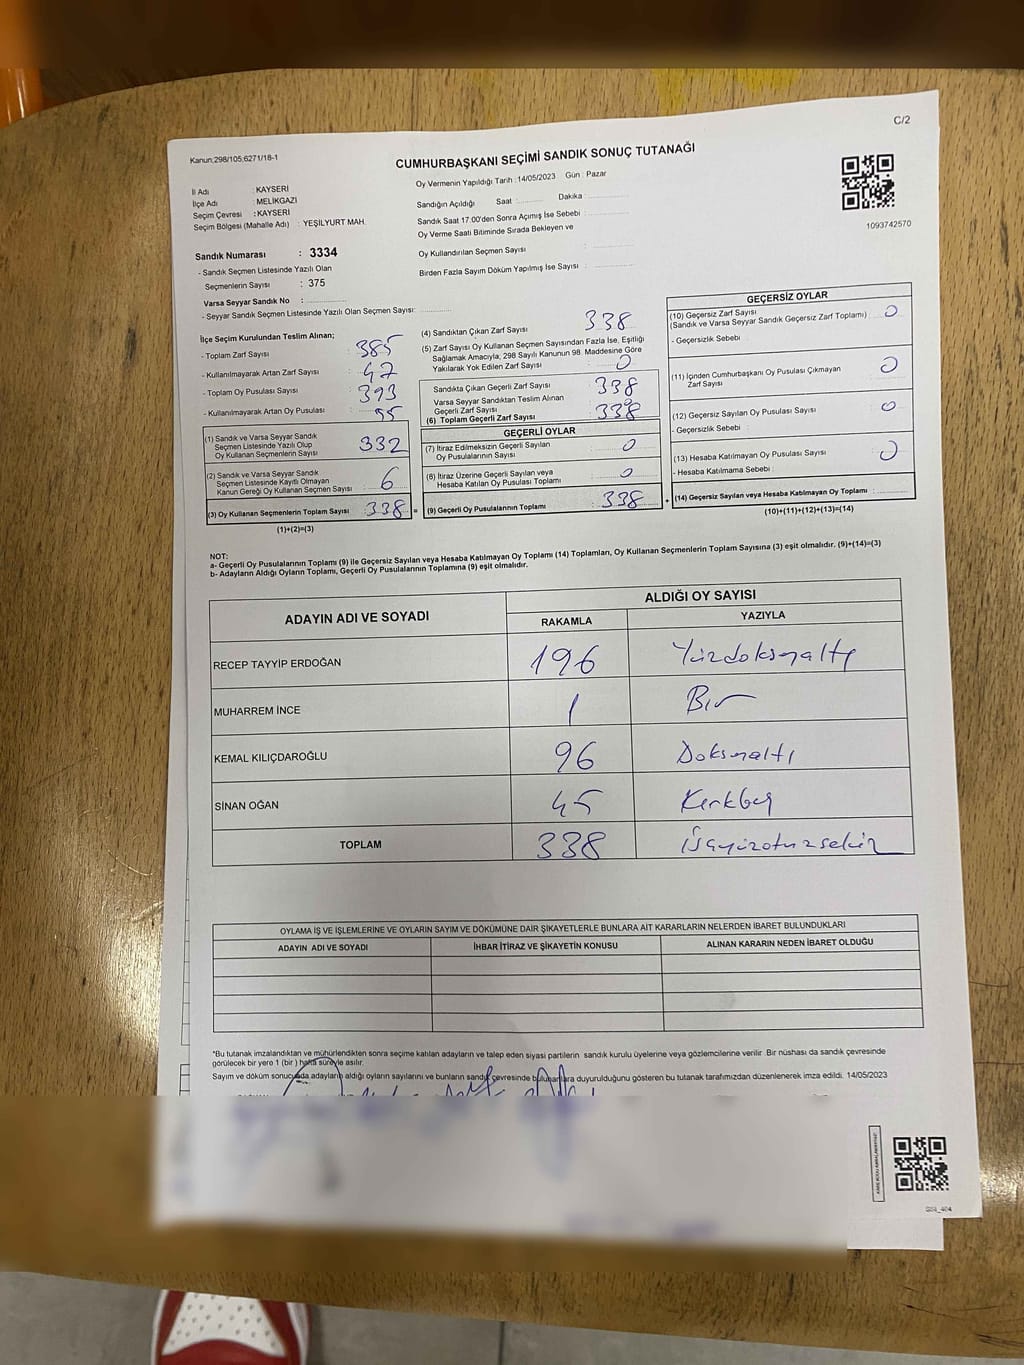 C/2
Kanun:298/105;6271/18-1
CUMHURBAŞKANI SEÇİMİ SANDIK SONUÇ TUTANAĞI
İl Adı : KAYSERİ
İlçe Adı : MELİKGAZİ
Seçim Çevresi : KAYSERİ
Seçim Bölgesi (Mahalle Adı) : YEŞİLYURT MAH.
Sandık Numarası : 3334
- Sandık Seçmen Listesinde Yazılı Olan
Seçmenlerin Sayısı : 375
Varsa Seyyar Sandık No :
- Seyyar Sandık Seçmen Listesinde Yazılı Olan Seçmen Sayısı:
Oy Vermenin Yapıldığı Tarih : 14/05/2023 Gün : Pazar
Sandığın Açıldığı Saat : Dakika :
Sandık Saat 17.00'den Sonra Açımış İse Sebebi :
Oy Verme Saati Bitiminde Sırada Bekleyen ve
Oy Kullandırılan Seçmen Sayısı :
Birden Fazla Sayım Döküm Yapılmış İse Sayısı :
1093742570
İlçe Seçim Kurulundan Teslim Alınan;
- Toplam Zarf Sayısı : 385
- Kullanılmayarak Artan Zarf Sayısı : 47
- Toplam Oy Pusulası Sayısı : 393
- Kullanılmayarak Artan Oy Pusulası : 55
(1) Sandık ve Varsa Seyyar Sandık
Seçmen Listesinde Yazılı Olup
Oy Kullanan Seçmenlerin Sayısı : 332
(2) Sandık ve Varsa Seyyar Sandık
Seçmen Listesinde Kayıtlı Olmayan
Kanun Gereği Oy Kullanan Seçmen Sayısı : 6
(3) Oy Kullanan Seçmenlerin Toplam Sayısı : 338 =
(1)+(2)=(3)
(4) Sandıktan Çıkan Zarf Sayısı : 338
(5) Zarf Sayısı Oy Kullanan Seçmen Sayısından Fazla İse, Eşitliği
Sağlamak Amacıyla; 298 Sayılı Kanunun 98. Maddesine Göre
Yakılarak Yok Edilen Zarf Sayısı : 0
Sandıkta Çıkan Geçerli Zarf Sayısı : 338
Varsa Seyyar Sandıktan Teslim Alınan
Geçerli Zarf Sayısı : 0
(6) Toplam Geçerli Zarf Sayısı : 338
GEÇERLİ OYLAR
(7) İtiraz Edilmeksizin Geçerli Sayılan
Oy Pusulalarının Sayısı : 0
(8) İtiraz Üzerine Geçerli Sayılan veya
Hesaba Katılan Oy Pusulası Toplamı : 0
(9) Geçerli Oy Pusulalarının Toplamı : 338 +
GEÇERSİZ OYLAR
(10) Geçersiz Zarf Sayısı
(Sandık ve Varsa Seyyar Sandık Geçersiz Zarf Toplamı) : 0
- Geçersizlik Sebebi :
(11) İçinden Cumhurbaşkanı Oy Pusulası Çıkmayan
Zarf Sayısı : 0
(12) Geçersiz Sayılan Oy Pusulası Sayısı : 0
- Geçersizlik Sebebi :
(13) Hesaba Katılmayan Oy Pusulası Sayısı : 0
- Hesaba Katılmama Sebebi :
(14) Geçersiz Sayılan veya Hesaba Katılmayan Oy Toplamı :
(10)+(11)+(12)+(13)=(14)
NOT:
a- Geçerli Oy Pusulalarının Toplamı (9) ile Geçersiz Sayılan veya Hesaba Katılmayan Oy Toplamı (14) Toplamları, Oy Kullanan Seçmenlerin Toplam Sayısına (3) eşit olmalıdır. (9)+(14)=(3)
b- Adayların Aldığı Oyların Toplamı, Geçerli Oy Pusulalarının Toplamına (9) eşit olmalıdır.
ADAYIN ADI VE SOYADI ALDIĞI OY SAYISI
RAKAMLA YAZIYLA
RECEP TAYYİP ERDOĞAN 196 Yüzdoksanaltı
MUHARREM İNCE 1 Bir
KEMAL KILIÇDAROĞLU 96 Doksanaltı
SİNAN OĞAN 45 Kırkbeş
TOPLAM 338 Üçyüzotuzsekiz
OYLAMA İŞ VE İŞLEMLERİNE VE OYLARIN SAYIM VE DÖKÜMÜNE DAİR ŞİKAYETLERLE BUNLARA AİT KARARLARIN NELERDEN İBARET BULUNDUKLARI
ADAYIN ADI VE SOYADI İHBAR İTİRAZ VE ŞİKAYETİN KONUSU ALINAN KARARIN NEDEN İBARET OLDUĞU
*Bu tutanak imzalandıktan ve mühürlendikten sonra seçime katılan adayların ve talep eden siyasi partilerin sandık kurulu üyelerine veya gözlemcilerine verilir. Bir nüshası da sandık çevresinde
görülecek bir yere 1 (bir) hafta süreyle asılır.
Sayım ve döküm sonucunda adayların aldığı oyların sayılarını ve bunların sandık çevresinde bulunanlara duyurulduğunu gösteren bu tutanak tarafımızdan düzenlenerek imza edildi. 14/05/2023